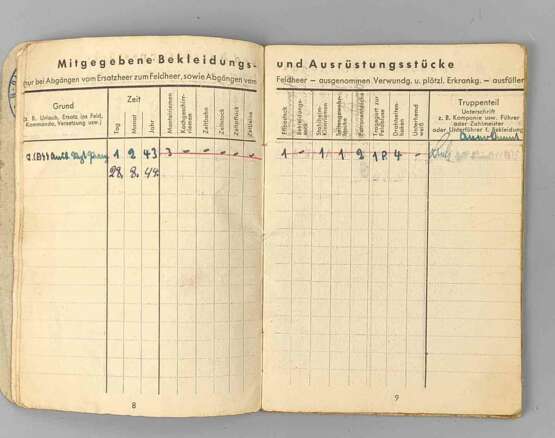 Mitgegebene Bekleidungs-
(nur bei Abgängen vom Ersatzheer zum Feldheer, sowie Abgängen vom
Grund
(z. B. Urlaub, Ersatz ins Feld,
Kommando, Versetzung usw.)
Zeit
Tag
Monat
Jahr
Mantelriemen
Kochgeschirr-
riemen
Zeltbahn
Zeltstock
Zeltpflock
Zeltleine
1 2 43 3 - - - - -
28. 8. 44.
8
und Ausrüstungsstücke
Feldheer — ausgenommen Verwundg. u. plötzl. Erkrankg. — ausfüllen
Bekleidungs-
sack
Stahlhelm-
Kinnriemen
Patronentasche
Transport zur
Feldbluse
Unterhemd
weiß
Truppenteil
Unterschrift
z. B. Kompanie usw. Führer
oder Zahlmeister
oder Unterführer f. Bekleidung
1 - 1 1 2 1 P. 4 -
9